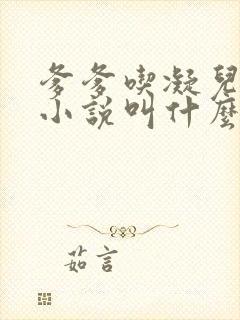 爹爹喫凝兒
小說叫什麼
茹言